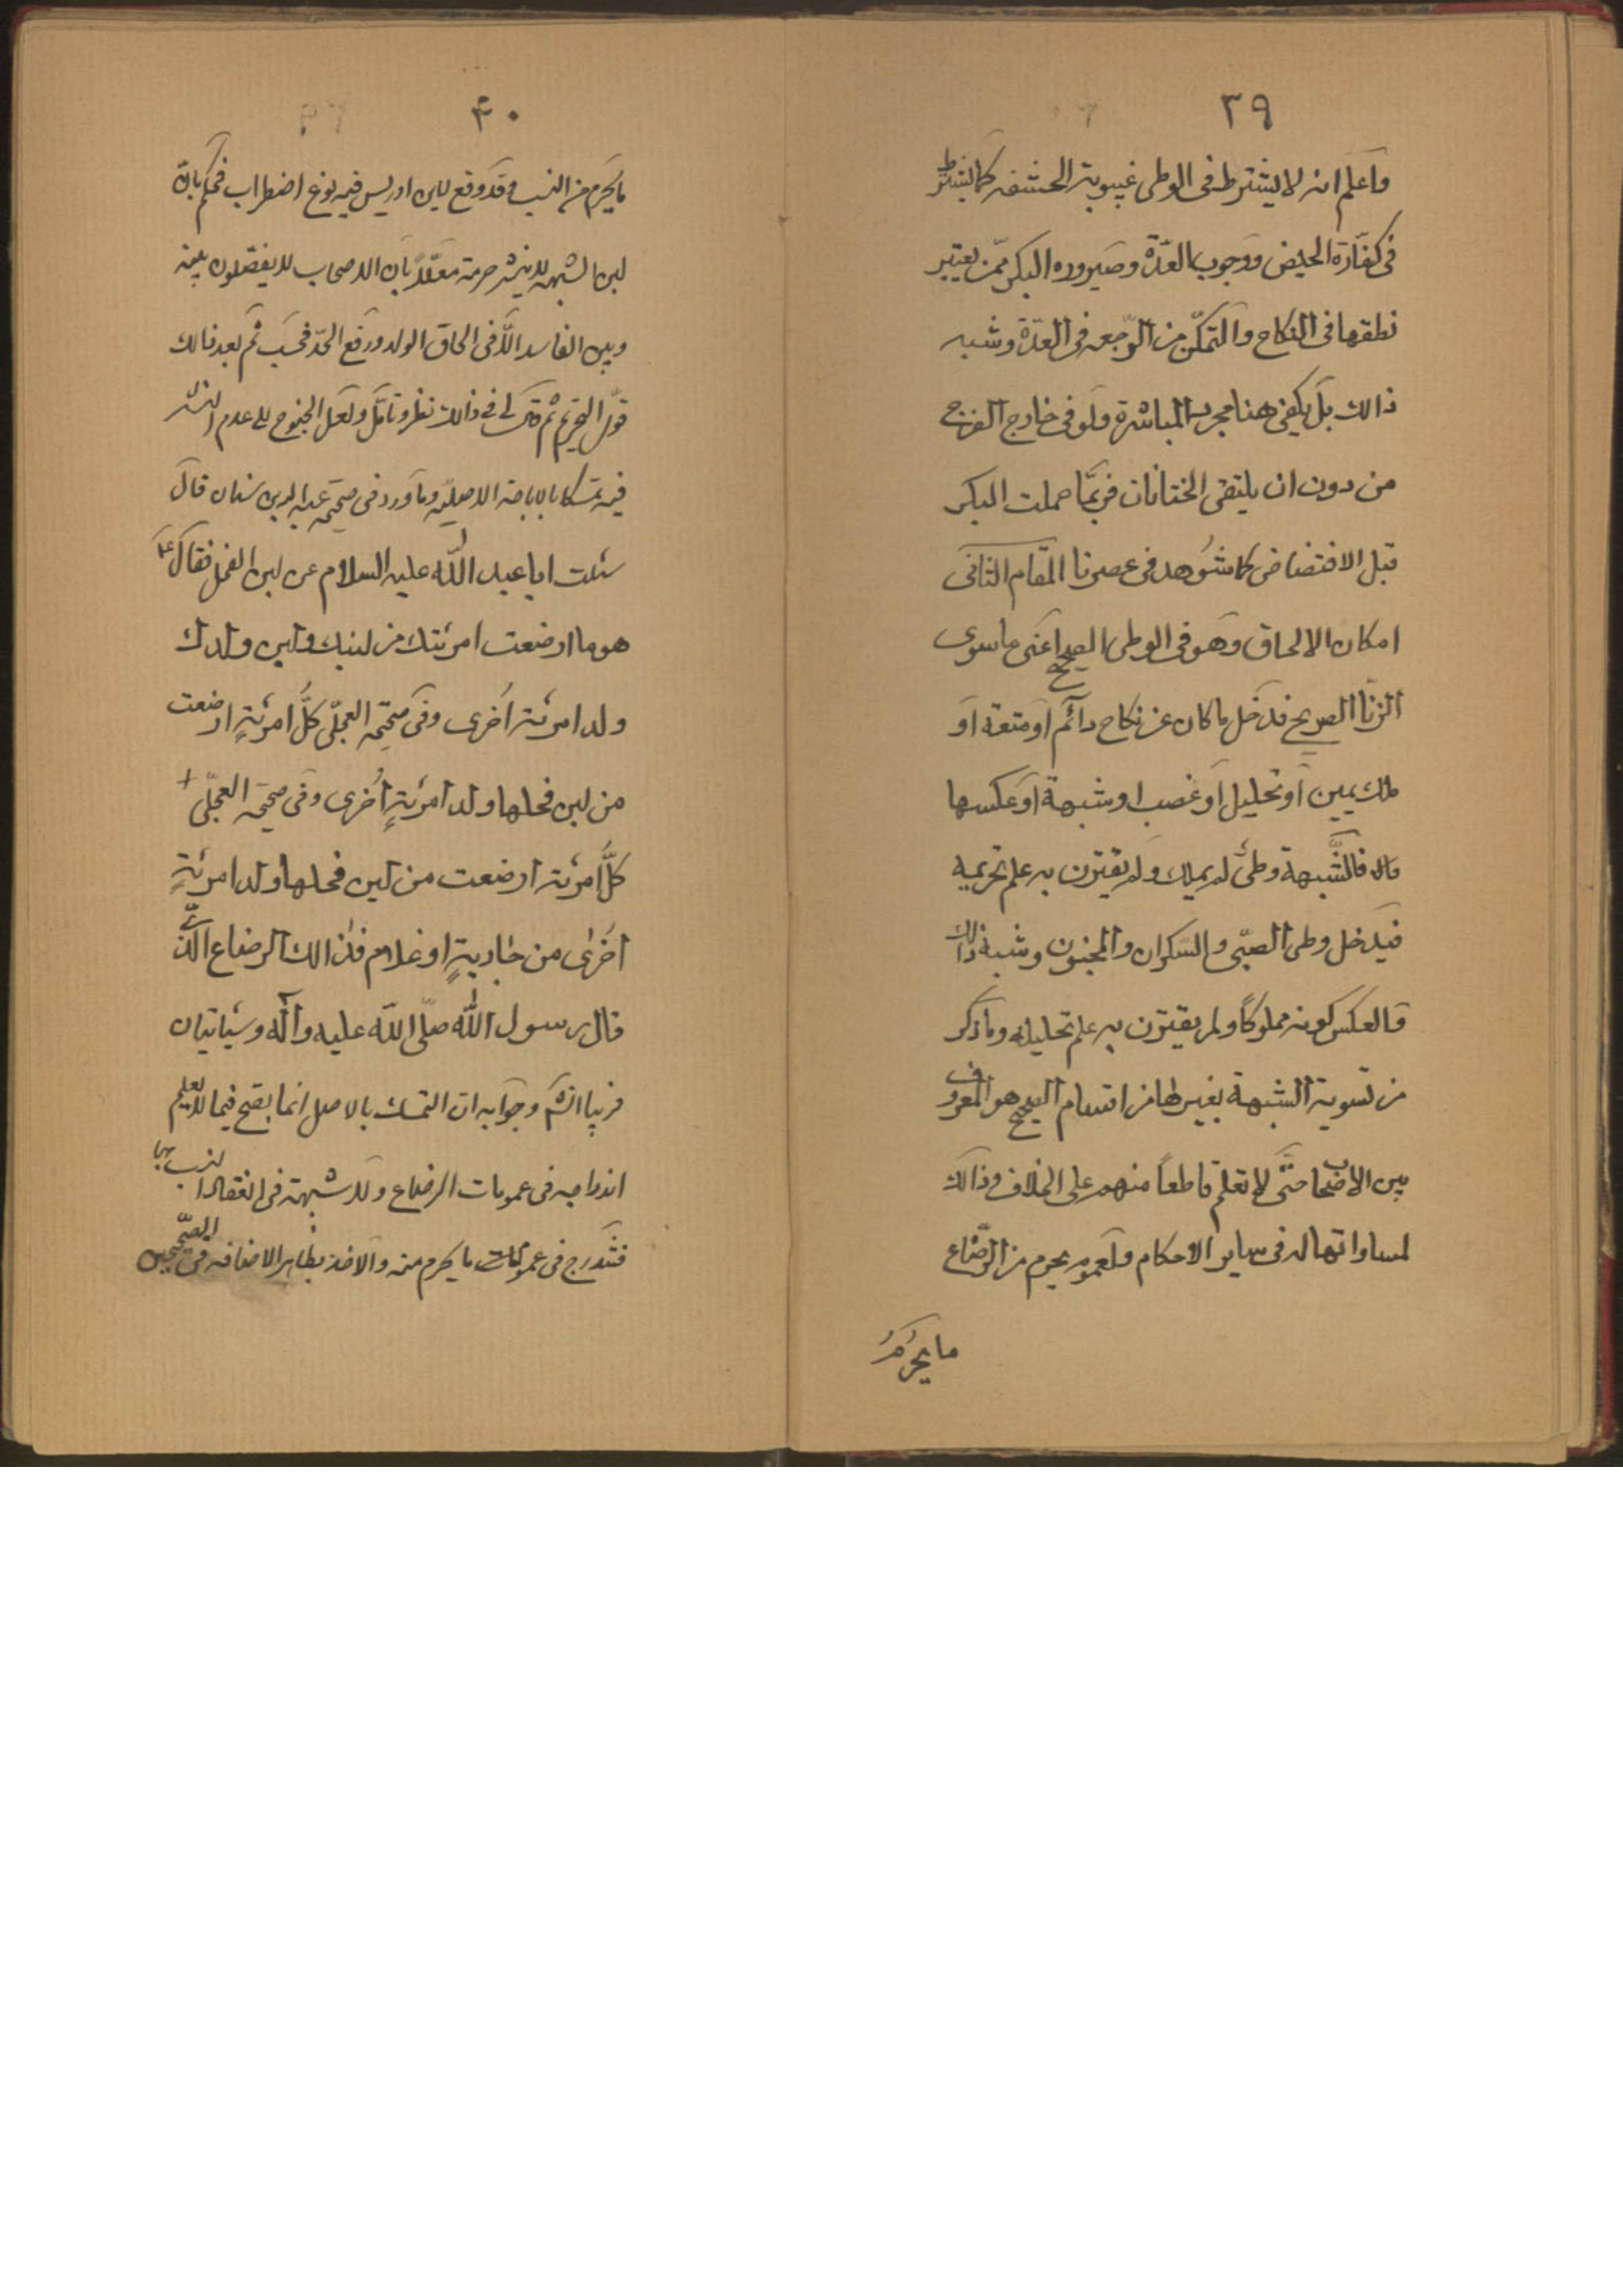 ٣٩
واعلم انه لا يشترط فى الوطى غيبوبة الحشفه كما يشترط
فى كفّارة الحيض ووجوب العدّة وصيروره البكر ممّن يعتبر
نطقها فى النكاح والتمكّن من الرّجعه فى العدّة وشبه
ذالك بل يكفى هنا مجرد المباشرة ولو فى خارج الفرج
من دون ان يلتقى الختانان فربّما حملت البكر
قبل الافتضاض كما شوهد فى عصرنا المقام الثانى
امكان الالحاق وهو فى الوطى الصحيح اعنى ما سوى
الزنّا الصريح فدخل ما كان عن نكاح دائم او متعة او
ملك يمين او تحليل او غصب او شبهة او عكسها
فالشّبهة وطىٌ لم يملك ولم يقترن به علم تحريمه
فيدخل وطى الصبّى والسّكران والمجنون وشبه ذالك
فالعكس كونه مملوكاً ولم يقترن به علم تحليله وما ذكر
من تسوية الشبهة بغيرها من اقسام الصحيح هو المعروف
بين الاصحاب حتّى لا نعلم قاطعاً منهم على الخلاف وذالك
لمساواتها له فى ساير الاحكام ولعموم يحرم من الرّضاع
ما يحرُمُ
۴٠
ما يحرم من النسب وقد وقع لابن ادريس فيه نوع اضطراب فحكم بانّ
لبن الشبهه لا ينشر حرمة معلّلاً بان الاصحاب لا يفصّلون بينه
وبين الفاسد الّا فى الحاق الولد ورفع الحدّ فحسب ثم بعد ذالك
قوّى التحريم ثم قال لى فى ذالك نظر وتامّل ولعل الجنوح الى عدم النشر
فيه تمسّكا بالاباحة الاصليّه وما ورد فى صحيحه عبد الله بن سنان قال
سئلت ابا عبد الله عليه السلام عن لبن الفحل فقال ع
هو ما ارضعت امرئتك من لبنك ولبن ولدك
ولد امرئة اخرى وفى صحيحه العجلّى كلّ امرئةٍ ارضعت
من لبن فحلها ولد امرئةٍ اُخرى وفى صحيحه العجلّى
كلُّ امرئة ارضعت من لبن فحلها ولد امرئةٍ
اخرى من جاريةٍ او غلام فذالك الرضاع الّذى
قال رسول الله صلّى الله عليه وآله وسياتيان
وجوابه ان التمسك بالاصل انما يصحّ فيما لا يعلم
اندراجه فى عمومات الرضاع ولا شبهة فى انعقاد النسب بها
فتندرج فى عمومات ما يحرم منه والاخذ بظاهر الاضافه فى الصّحيحين